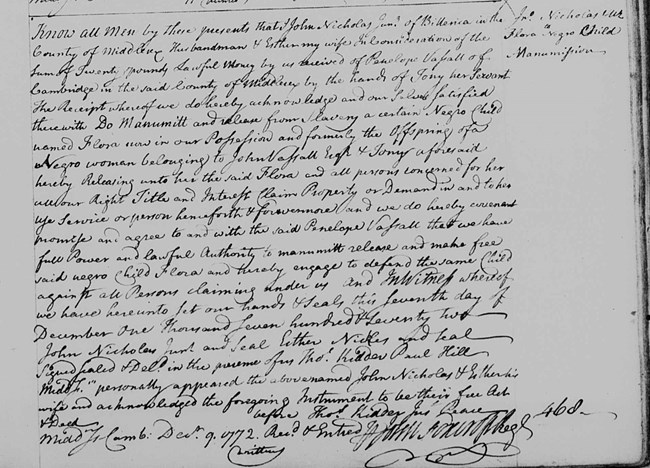 Know all Men by these presents that I John Nicholas Junr. of Billerica in the
County of Middlesex Husbandman & Esther my wife In Consideration of the
Sum of Twenty pounds Lawful Money by us received of Penelope Vassall of
Cambridge in the said County of Middlesex by the hands of Tony her Servant
The Receipt whereof we do hereby acknowledge and our Selves Satisfied
therewith Do Manumitt and release from Slavery a certain Negro Child
named Flora now in our Possession and formerly the Offspring of a
Negro woman belonging to John Vassall Esqr. & Tony aforesaid
hereby Releasing unto her the said Flora and all persons concerned for her
all our Right Title and Interest Claim Property or Demand in and to her
use Service or person henceforth & forevermore and we do hereby covenant
promise and agree to and with the said Penelope Vassall that we have
full Power and lawful Authority to manumitt release and make free
said negro Child Flora and thereby engage to defend the same Child
against all Persons claiming under us And In Witness whereof
we have hereunto set our hands & Seals this Seventh day of
December One Thousand Seven hundred & Seventy two
John Nicholas Junr. and Seal Esther Nickles and Seal
Signed Sealed & Deld. in the presence of us Thos. Kidder Paul Hill
Middx. Ss. personally appeared the above named John Nicholas & Esther his
wife and acknowledged the foregoing Instrument to be their free Act
& Deed before Thos. Kidder Jus Peace
Middx. Ss Camb: Decr. 9. 1772. Recd. & Entred
written
Jno. Nicholas
Flora Negro Child
Manumission
468